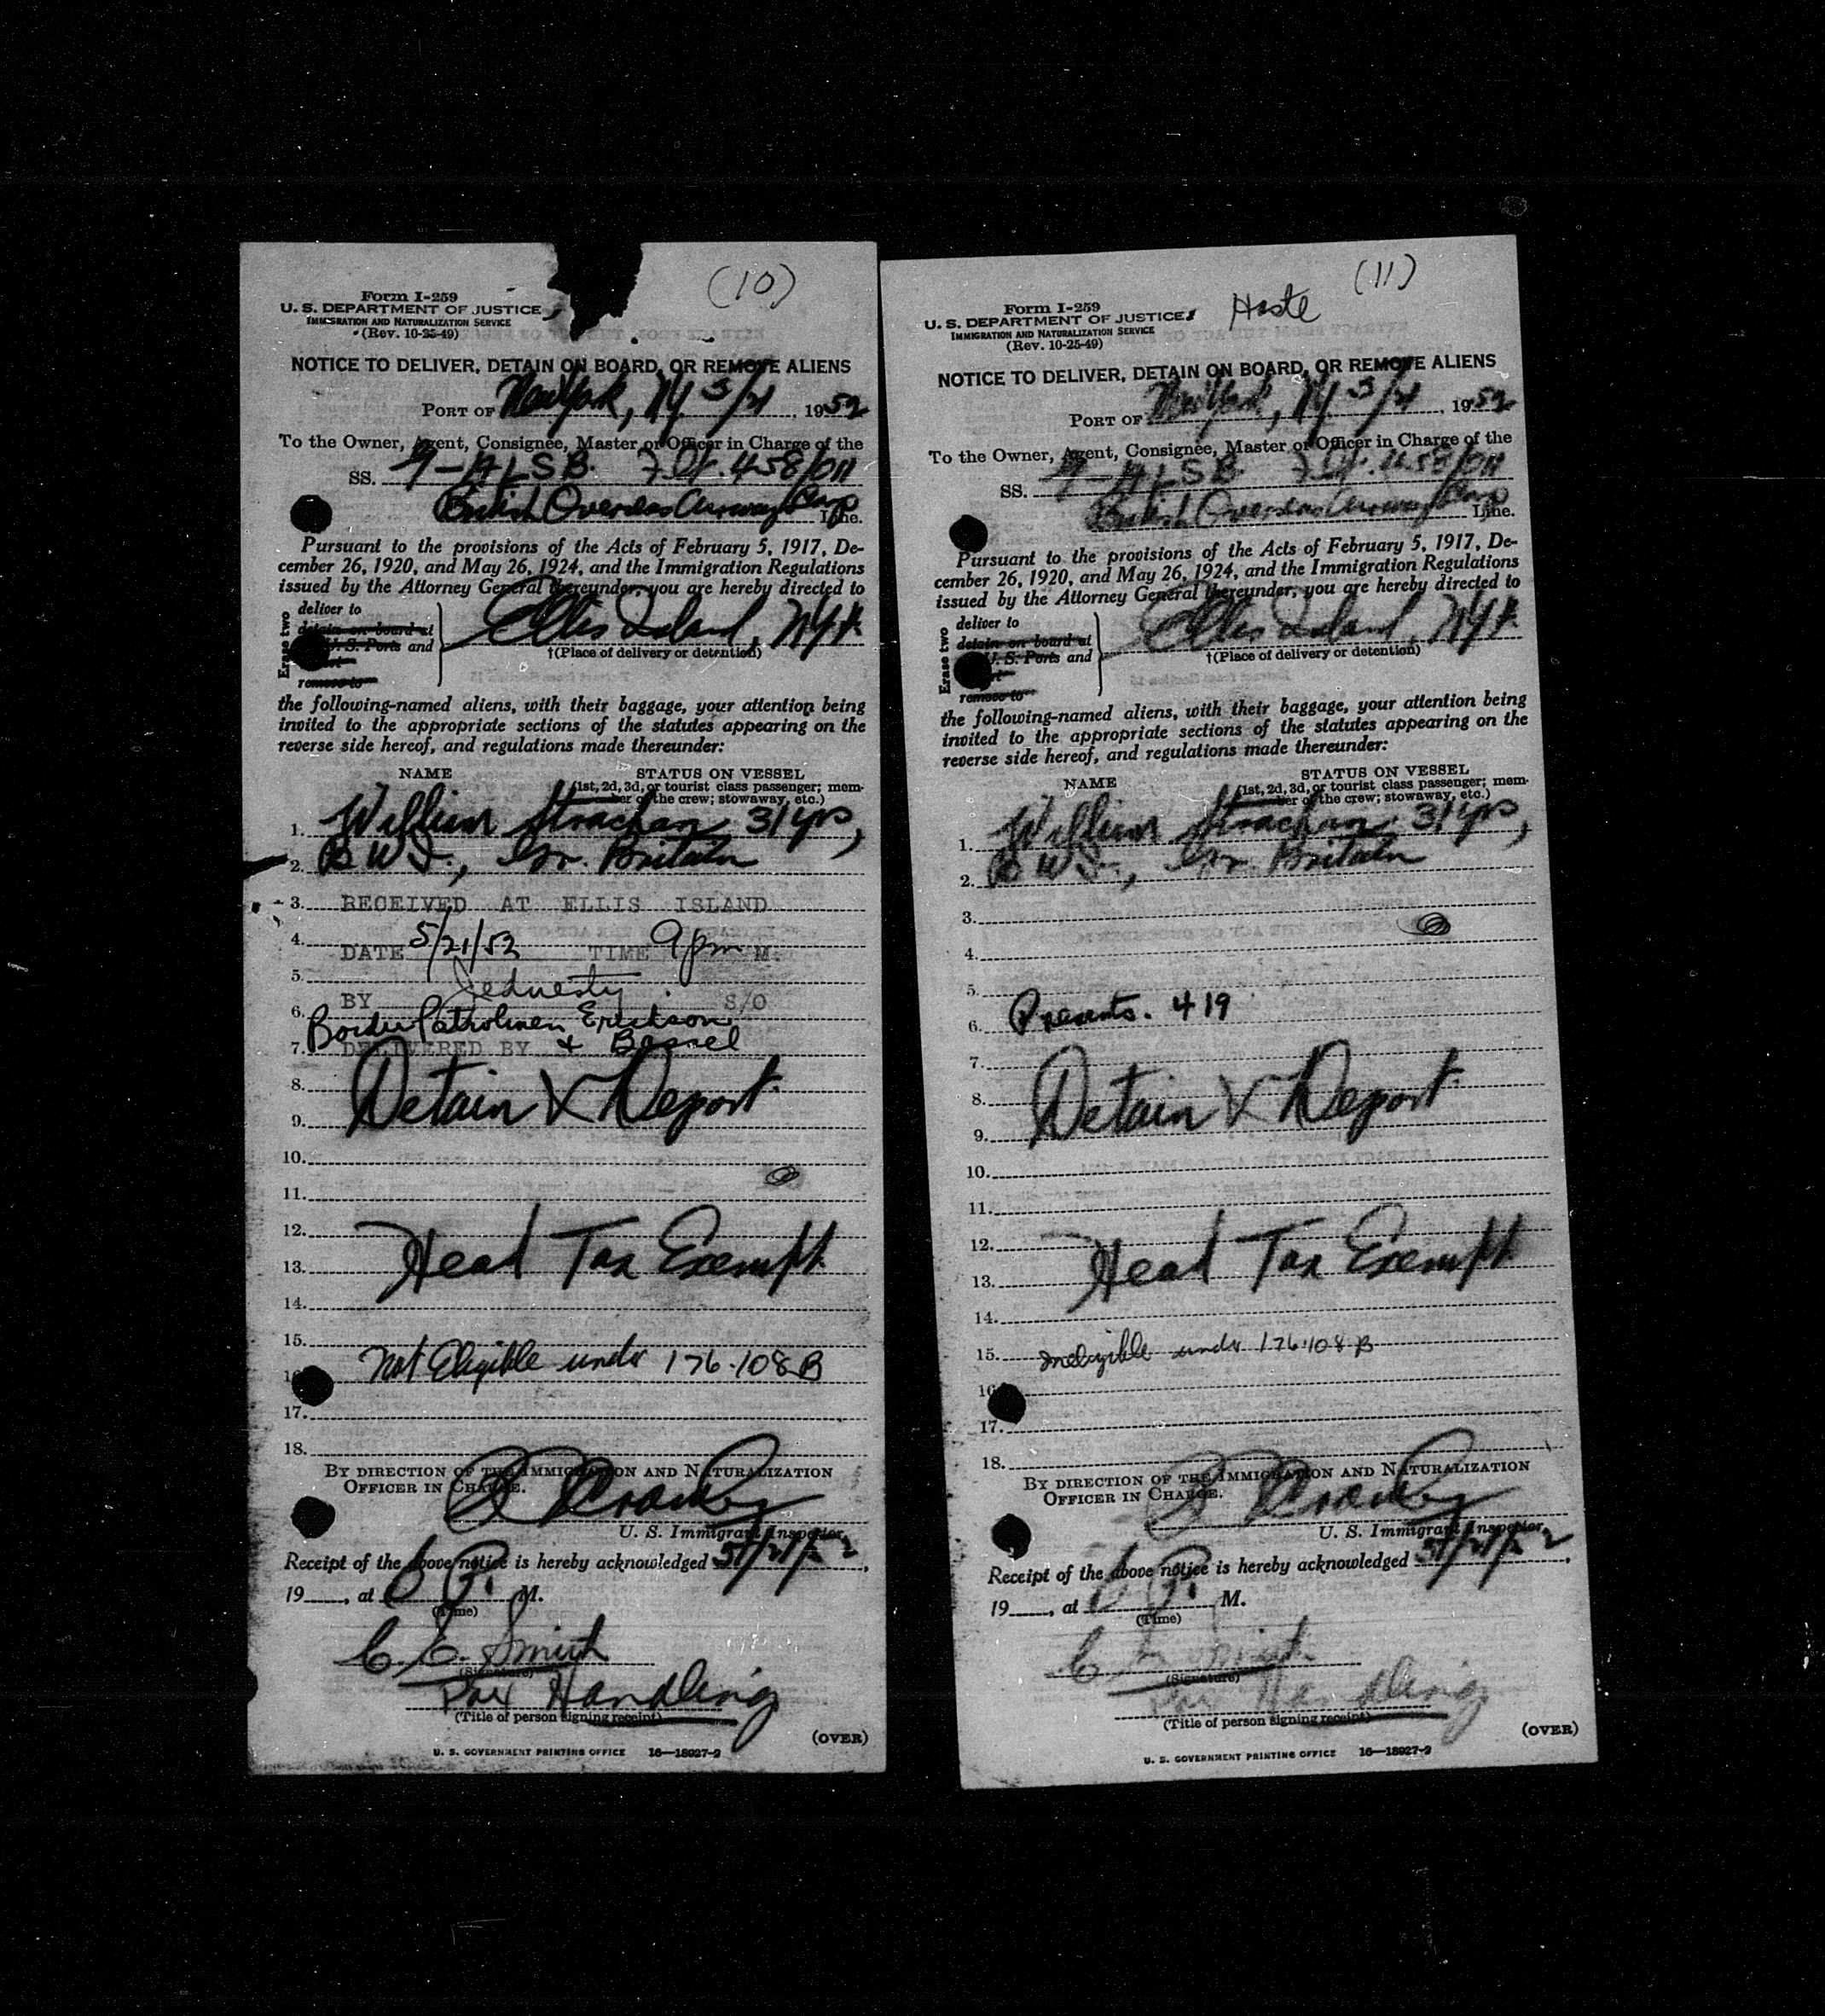 (10)
Form I-259
U. S. DEPARTMENT OF JUSTICE
IMMIGRATION AND NATURALIZATION SERVICE
(Rev. 10-25-49)
NOTICE TO DELIVER, DETAIN ON BOARD, OR REMOVE ALIENS
PORT OF New York, NY. 5/21, 1952
To the Owner, Agent, Consignee, Master or Officer in Charge of the
SS. G-ALSB Flt. 458/011
British Overseas Airways Corp Line.
Pursuant to the provisions of the Acts of February 5, 1917, De-
cember 26, 1920, and May 26, 1924, and the Immigration Regulations
issued by the Attorney General thereunder, you are hereby directed to
Erase two
deliver to
detain on board at
U. S. Ports and
remove to
Ellis Island, NYH.
†(Place of delivery or detention)
the following-named aliens, with their baggage, your attention being
invited to the appropriate sections of the statutes appearing on the
reverse side hereof, and regulations made thereunder:
NAME STATUS ON VESSEL
(1st, 2d, 3d, or tourist class passenger; mem-
ber of the crew; stowaway, etc.)
1. William Strachan 31 yrs,
2. B W I., Gr. Britain
3. RECEIVED AT ELLIS ISLAND
4. DATE 5/21/52 TIME 9 pm M.
5.
BY S/O
6. Border Patrolmen Erickson
7. DELIVERED BY & Bassel
8. Detain & Deport.
9.
10.
11.
12.
13. Head Tax Exempt.
14.
15.
16. Not Eligible under 176.108 B
17.
18.
BY DIRECTION OF THE IMMIGRATION AND NATURALIZATION
OFFICER IN CHARGE.
U. S. Immigrant Inspector.
Receipt of the above notice is hereby acknowledged 5/21/52,
19, at P. M.
(Time)
C. E. Smith
(Signature)
Pax Handling
(Title of person signing receipt)
(OVER)
U. S. GOVERNMENT PRINTING OFFICE 16—18927-2
(11)
Form I-259
U. S. DEPARTMENT OF JUSTICE
IMMIGRATION AND NATURALIZATION SERVICE
(Rev. 10-25-49)
NOTICE TO DELIVER, DETAIN ON BOARD, OR REMOVE ALIENS
PORT OF New York, NY. 5/21, 1952
To the Owner, Agent, Consignee, Master or Officer in Charge of the
SS. G-ALSB Flt. 458/011
British Overseas Airways Corp Line.
Pursuant to the provisions of the Acts of February 5, 1917, De-
cember 26, 1920, and May 26, 1924, and the Immigration Regulations
issued by the Attorney General thereunder, you are hereby directed to
Erase two
deliver to
detain on board at
U. S. Ports and
remove to
Ellis Island, NYH.
†(Place of delivery or detention)
the following-named aliens, with their baggage, your attention being
invited to the appropriate sections of the statutes appearing on the
reverse side hereof, and regulations made thereunder:
NAME STATUS ON VESSEL
(1st, 2d, 3d, or tourist class passenger; mem-
ber of the crew; stowaway, etc.)
1. William Strachan 31 yrs,
2. B W I., Gr. Britain
3.
4.
5.
6. 419
7.
8. Detain & Deport.
9.
10.
11.
12.
13. Head Tax Exempt
14.
15. Ineligible under 176.108 B
16
17.
18.
BY DIRECTION OF THE IMMIGRATION AND NATURALIZATION
OFFICER IN CHARGE.
U. S. Immigrant Inspector.
Receipt of the above notice is hereby acknowledged 5/21/52,
19, at P. M.
(Time)
C. E. Smith
(Signature)
Pax Handling
(Title of person signing receipt)
(OVER)
U. S. GOVERNMENT PRINTING OFFICE 16—18927-2